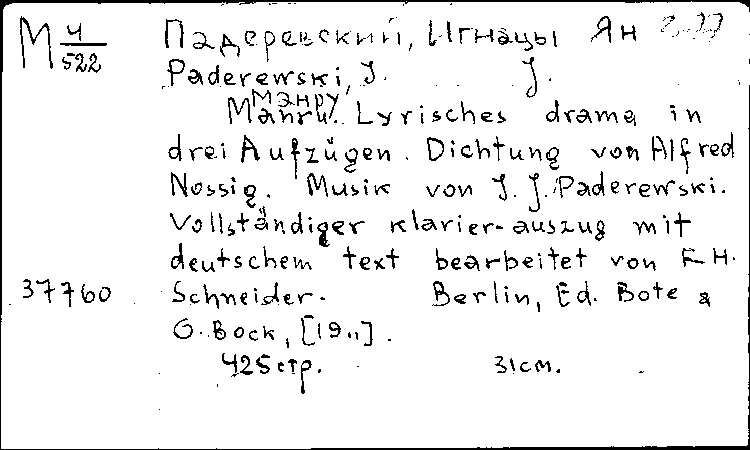 М 4/522 Падеревский, Игнацы Ян
Paderewski, J. J.
Манру
Manru. Lyrisches drama in
drei Aufzügen. Dichtung von Alfred
Nossig. Musik von J. J. Paderewski.
Vollständiger klavier-auszug mit
deutschem text bearbeitet von F. H.
37760 Schneider. Berlin, Ed. Bote &
G. Bock, [19..].
425 стр. 31 см.